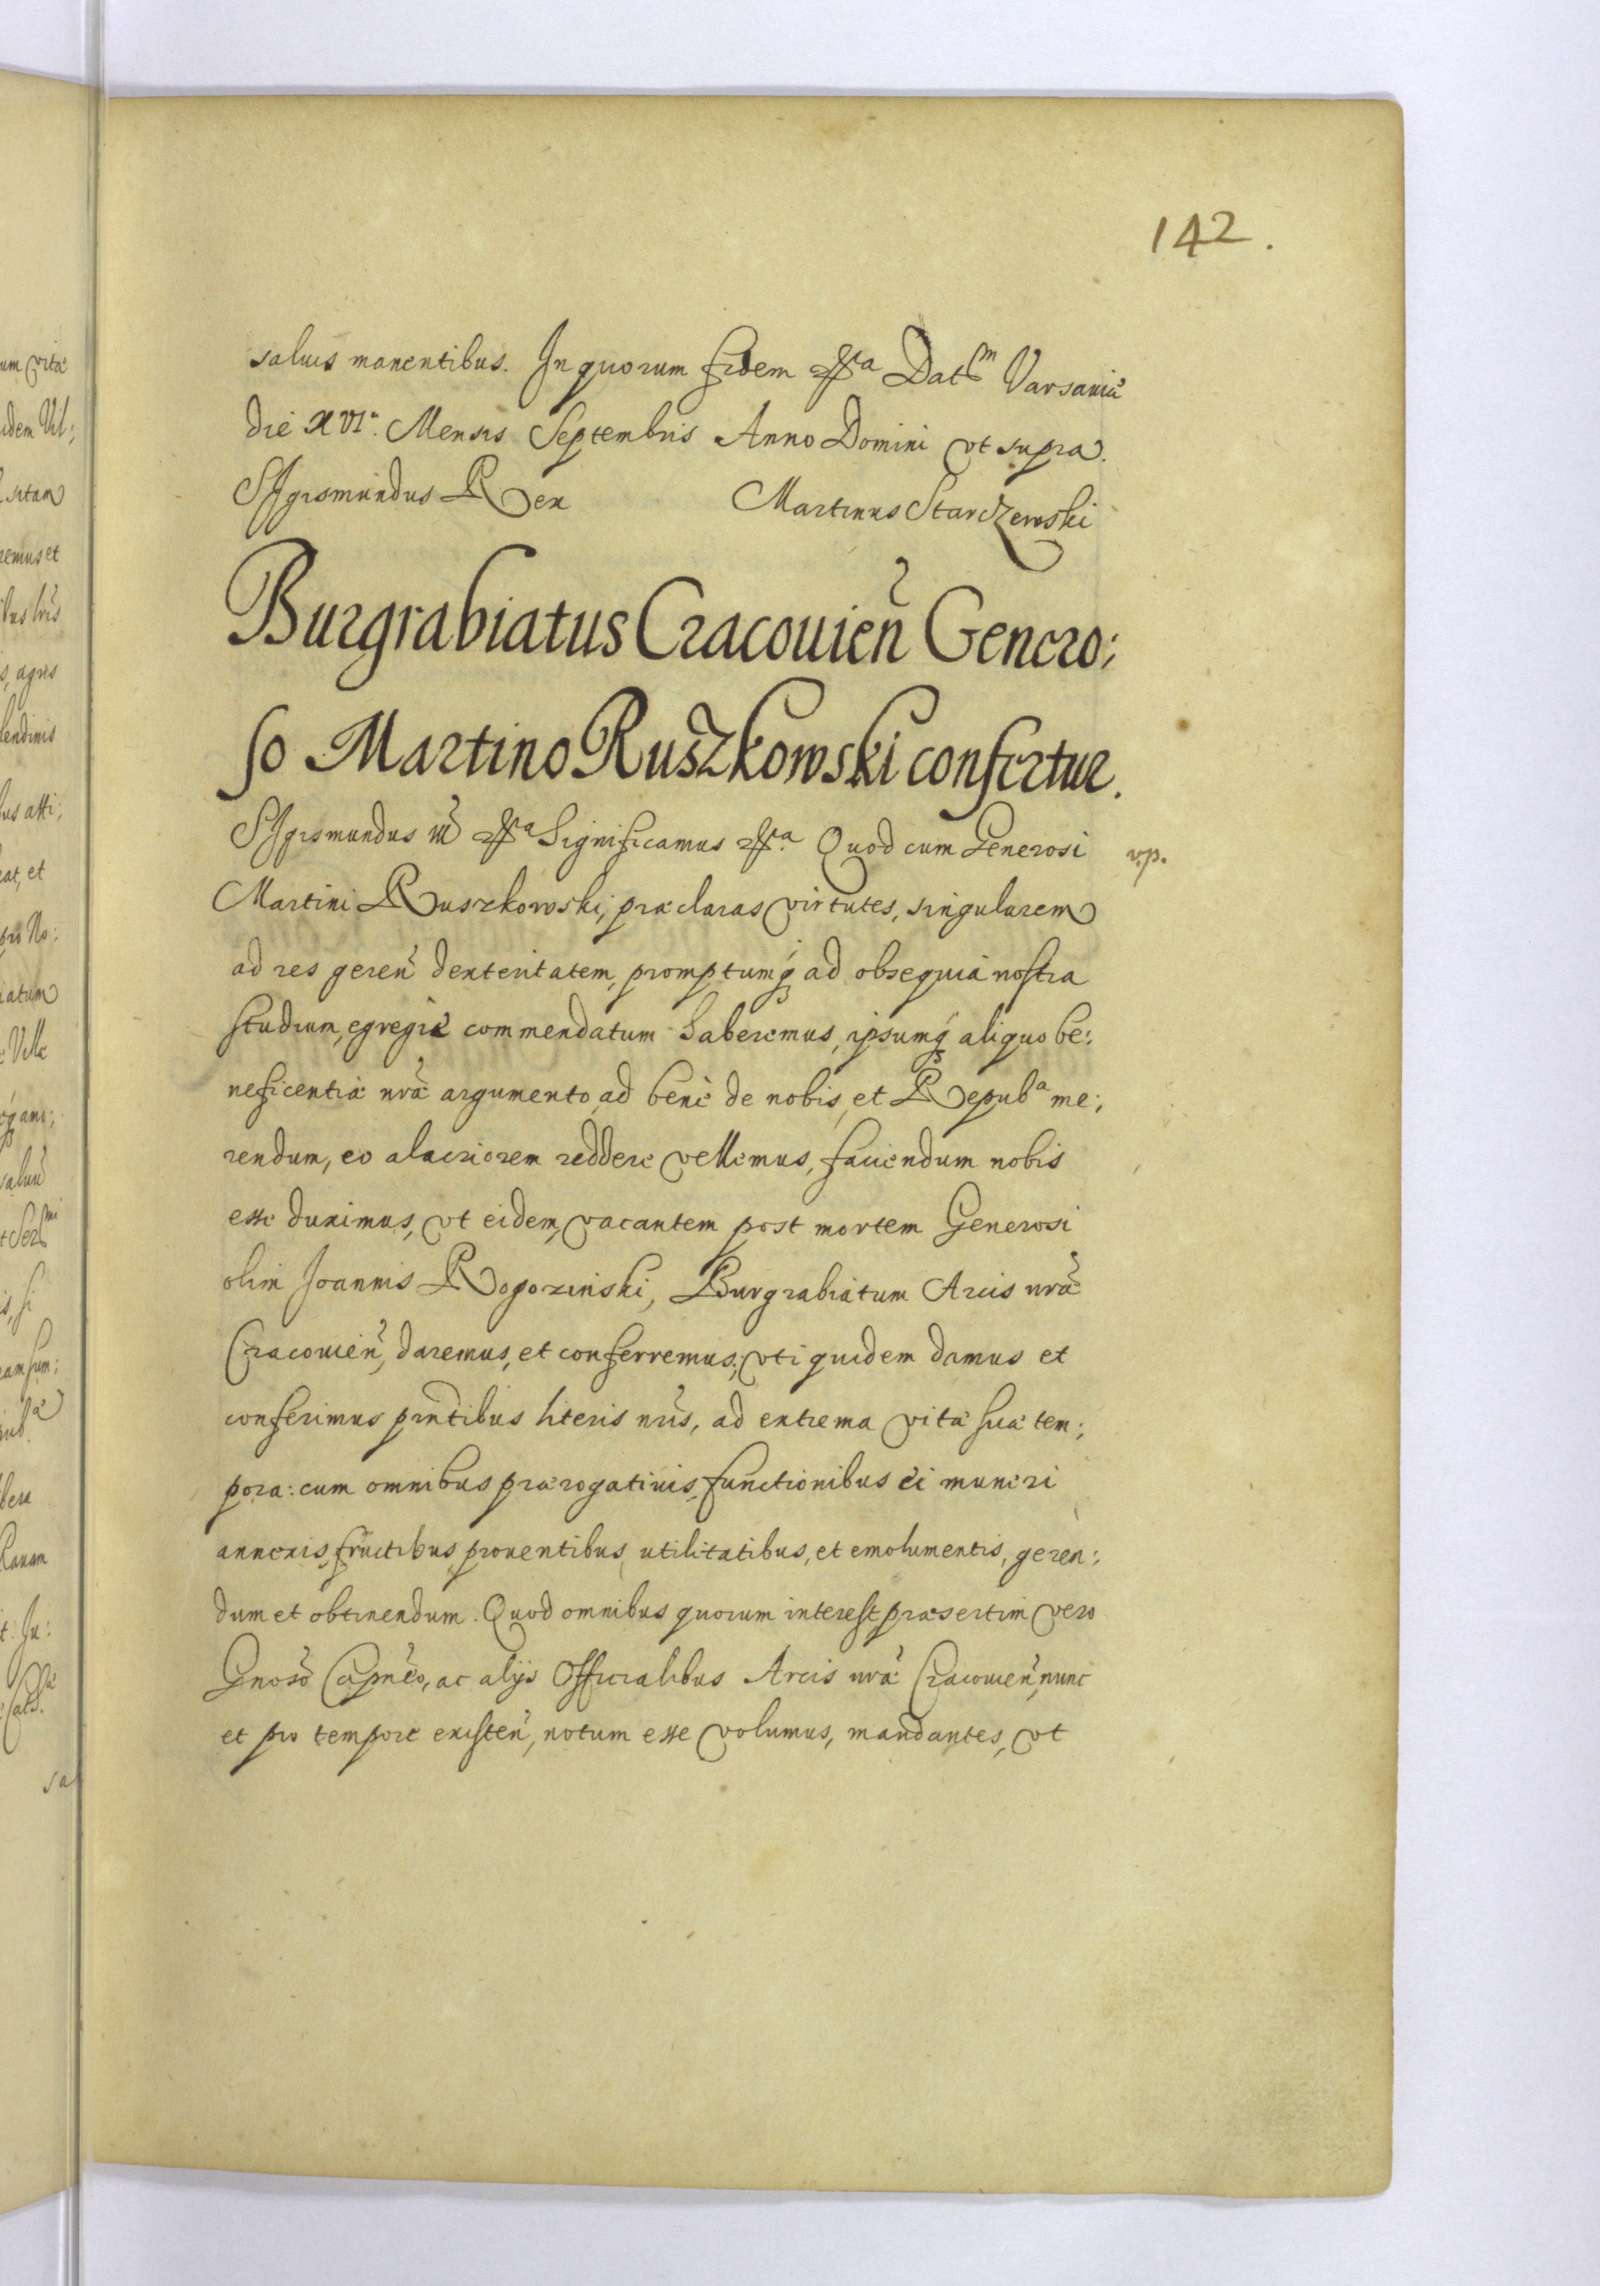 142.
saluis manentibus. In quorum fidem &ca Dat͠m Varsauiæ
die XVI. Mensis Septembris Anno Domini vt supra.
Sigismundus Rex Martinus Starczewski
Burgrabiatus Cracouieñ Genero:
so Martino Ruszkowski confertur.
Sigismundus III &ca Significamus &ca Quod cum Generosi v.p.
Martini Ruszkowski, præclaras virtutes, singularem
ad res gereñ dexteritatem, promptumq́ ad obsequia nostra
studium, egregiè commendatum haberemus, ipsumq́ aliquo be:
neficentiæ nr̃æ argumento, ad bene de nobis, et Repuba me:
rendum, eo alacriorem reddere vellemus, faciendum nobis
esse duximus, vt eidem, vacantem post mortem Generosi
olim Joannis Rogozinski, Burgrabiatum Arcis nr̃æ
Cracouieñ, daremus, et conferremus; vti quidem damus et
conferimus pñtibus literis nr̃is, ad extrema vitæ suæ tem:
pora: cum omnibus prærogatiuis, functionibus ei muneri
annexis, fructibus, prouentibus, utilitatibus, et emolumentis, geren:
dum et obtinendum. Quod omnibus quorum interest præsertim vero
Gnoso Capneo, ac alijs Officialibus Arcis nr̃æ Cracouieñ, nunc
et pro tempore existeñ, notum esse volumus, mandantes, vt